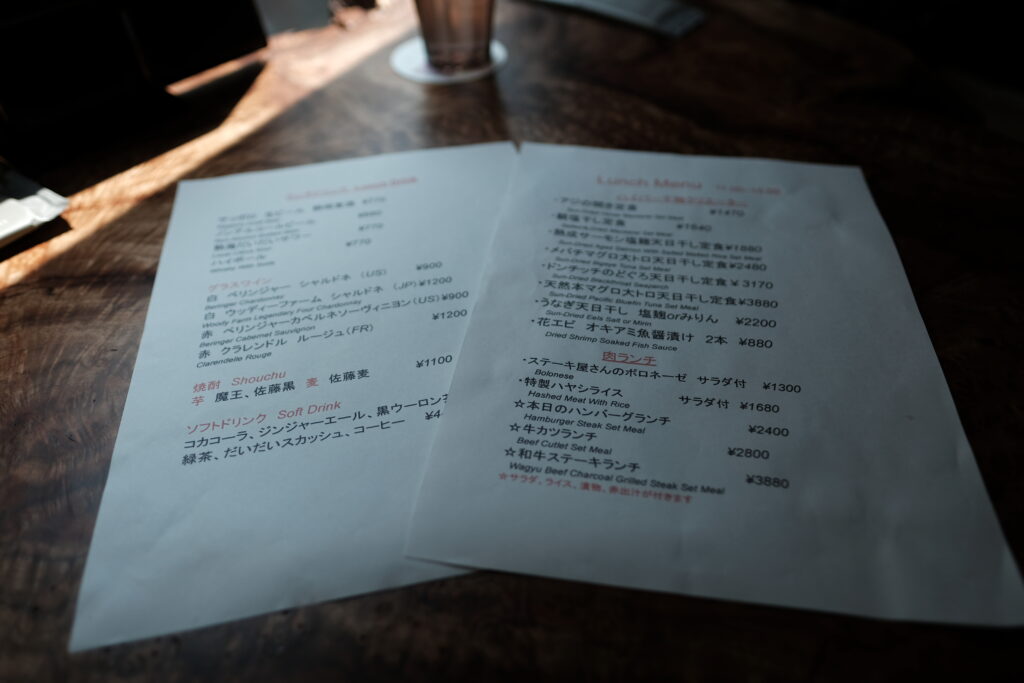 ¥770
ノンアルコールビール ¥660
熱海だいだいサワー ¥770
ハイボール ¥770
Whisky With Soda
グラスワイン
白 ベリンジャー シャルドネ (US) ¥900
Beringer Chardonnay
白 ウッディーファーム シャルドネ (JP) ¥1200
Woody Farm Legendary Four Chardonnay
赤 ベリンジャーカベルネソーヴィニヨン(US) ¥900
Beringer Cabernet Sauvignon
赤 クラレンドル ルージュ(FR) ¥1200
Clarendelle Rouge
焼酎 Shouchu
芋 魔王、佐藤黒 麦 佐藤麦 ¥1100
ソフトドリンク Soft Drink
コカコーラ、ジンジャーエール、黒ウーロン
緑茶、だいだいスカッシュ、コーヒー ¥4
Lunch Menu
・アジの開き定食 ¥1470
・鯖塩干し定食 ¥1640
・熟成サーモン塩麹天日干し定食 ¥1880
Sun-Dried Aged Salmon With Salted Malted Rice Set Meal
・メバチマグロ大トロ天日干し定食 ¥2480
Sun-Dried Bigeye Tuna Set Meal
・ドンチッチのどぐろ天日干し定食 ¥3170
Sun-Dried Blackthroat Seaperch
・天然本マグロ大トロ天日干し定食 ¥3880
Sun-Dried Pacific Bluefin Tuna Set Meal
・うなぎ天日干し 塩麹orみりん ¥2200
Sun-Dried Eels Salt or Mirin
・花エビ オキアミ魚醤漬け 2本 ¥880
Dried Shrimp Soaked Fish Sauce
肉ランチ
・ステーキ屋さんのボロネーゼ サラダ付 ¥1300
Bolonese
・特製ハヤシライス サラダ付 ¥1680
Hashed Meat With Rice
☆本日のハンバーグランチ ¥2400
Hamburger Steak Set Meal
☆牛カツランチ ¥2800
Beef Cutlet Set Meal
☆和牛ステーキランチ ¥3880
Wagyu Beef Charcoal Grilled Steak Set Meal
☆サラダ、ライス、漬物、赤出汁が付きます